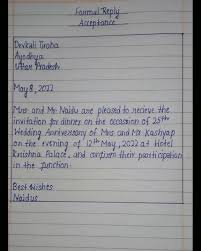 Formal Reply
Acceptance
Devkali Tiraha
Ayodhya
Uttar Pradesh
May 8, 2022
Mrs and Mr. Naidu are pleased to recieve the
invitation for dinner on the occassion of 25th
Wedding Anniversary of Mrs and Mr Kashyap
on the evening of 12th May, 2022 at Hotel
Krishna Palace, and confirm their participation
in the function.
Best Wishes
Naidus